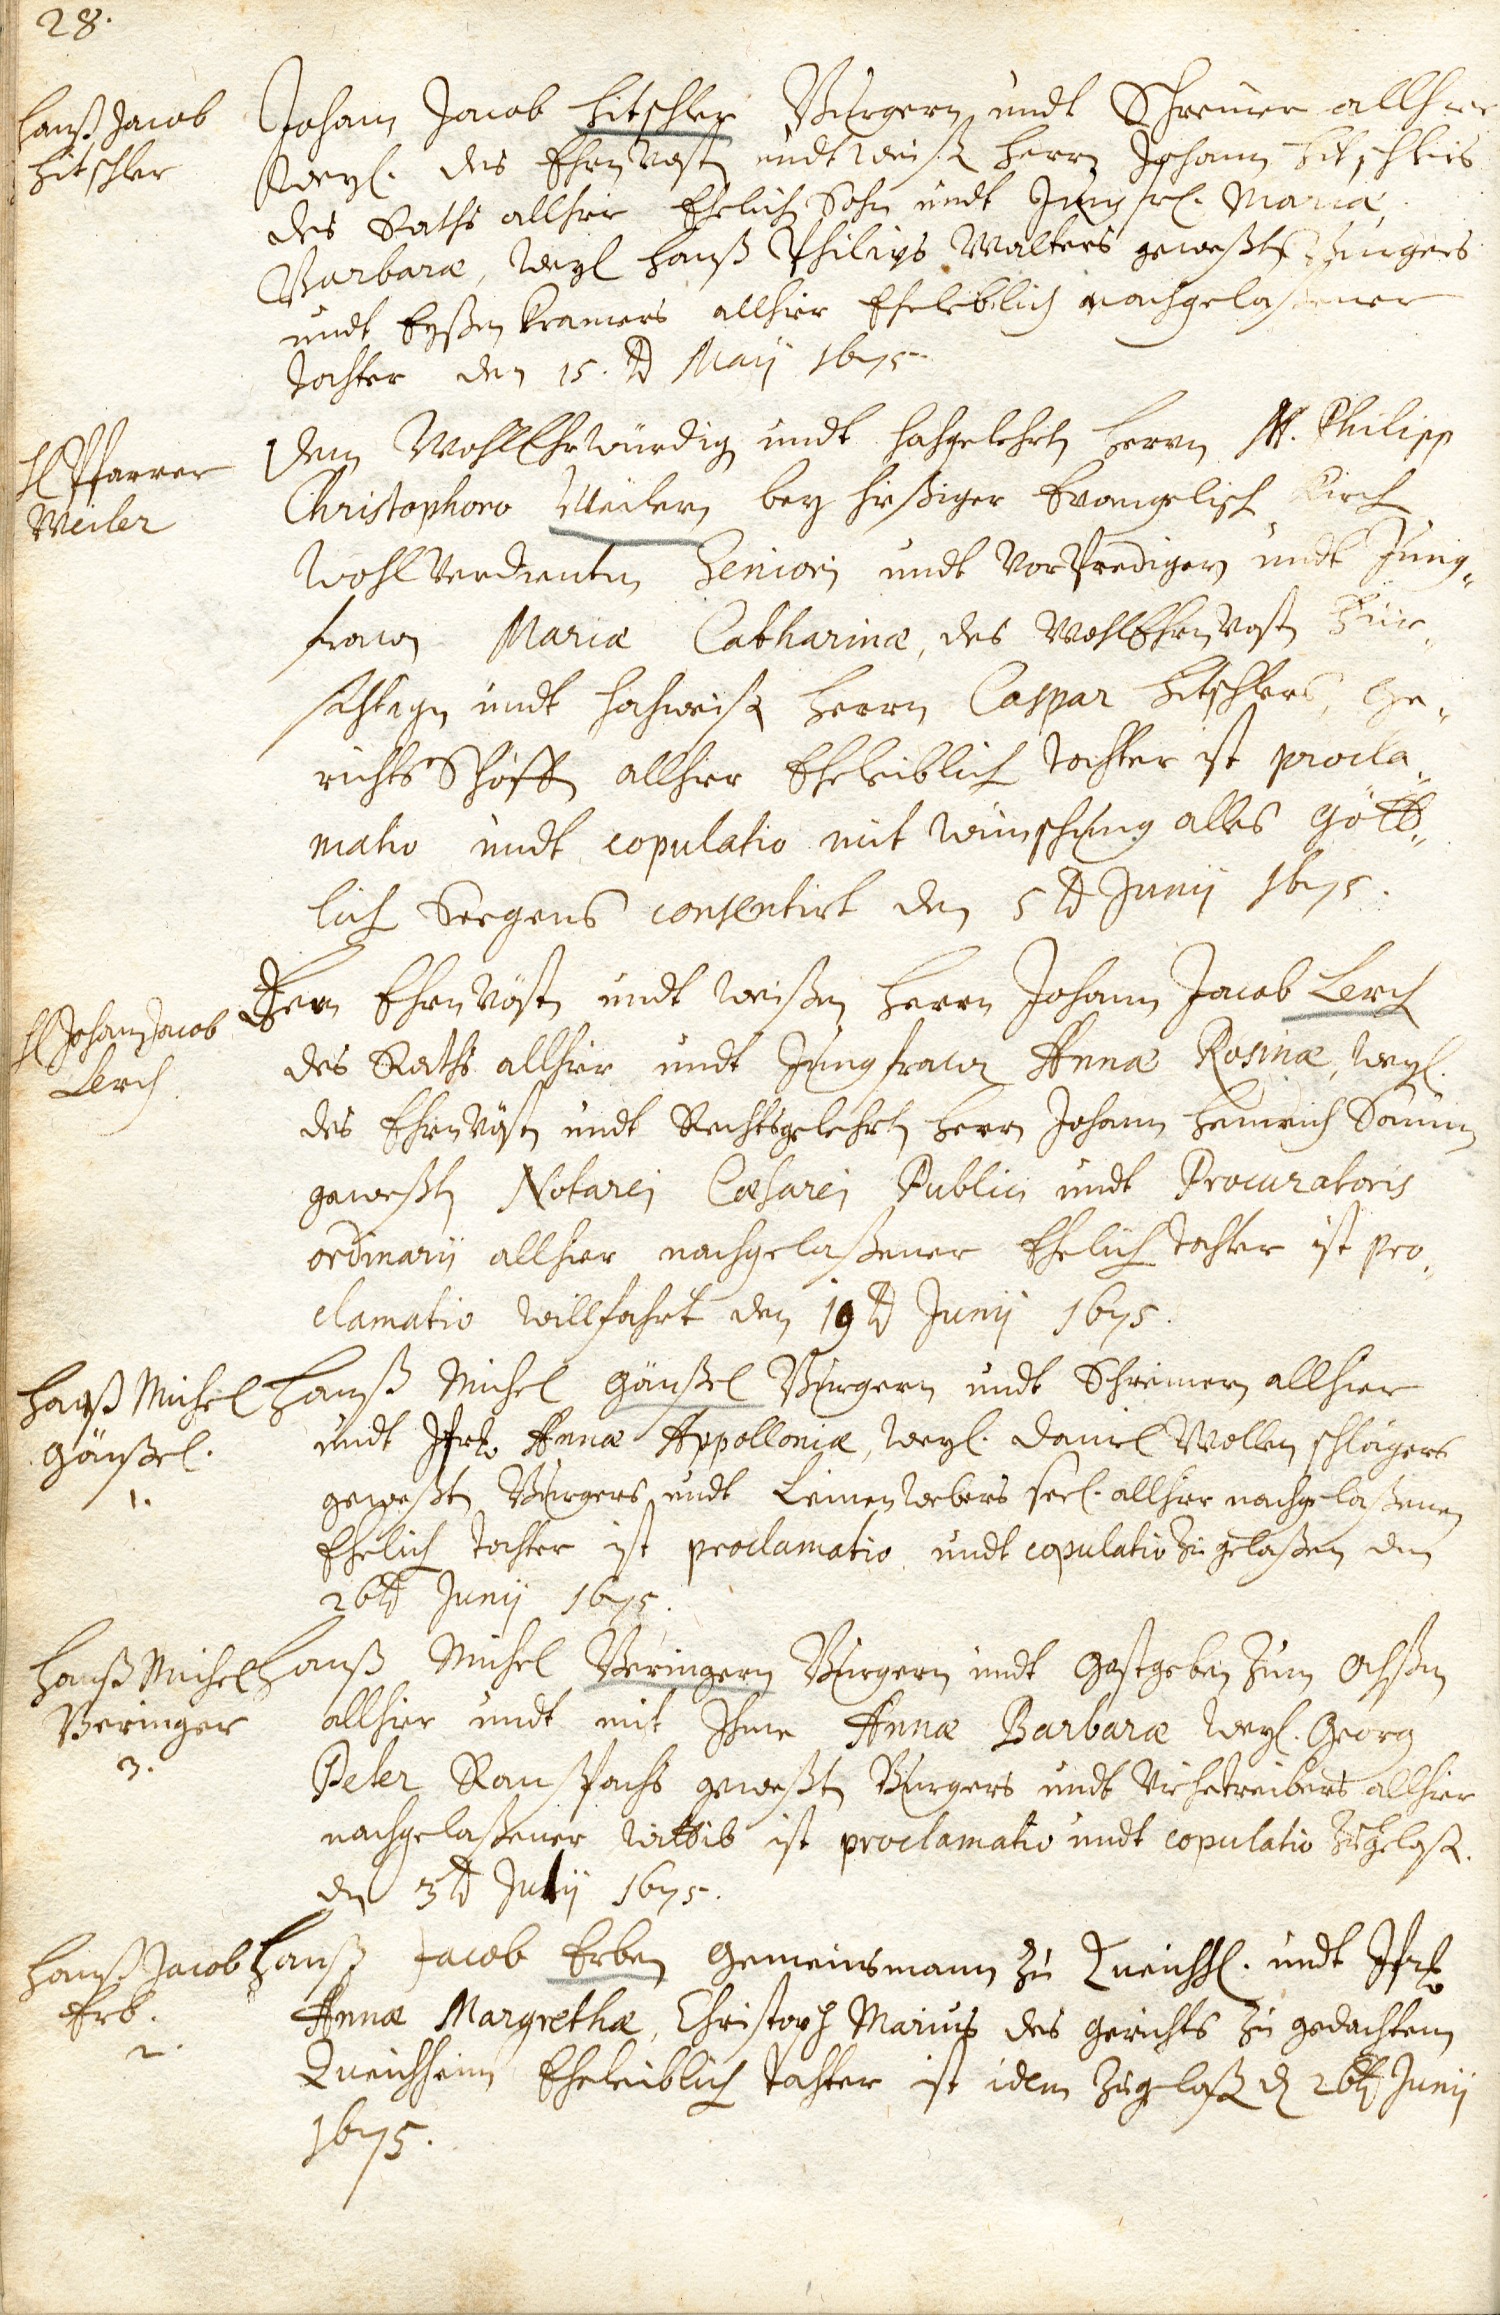 28.
Hanß Jacob
Hitschler
Johann Jacob Hitschler Burgern undt Schreiner allhier
Weyl. des Ehrnvest undt weiß Herrn Johann Hitschlers
des Raths allhier Ehelich Sohn undt Jungfrl. Mariæ
Barbaræ, Weyl Hanß Philips Walters geweßt Burgers
undt Eyßen Kramers allhier Eheleiblich nachgelaßener
Tochter den 15. t Maij 1675
H Pfarrer
Weiler
Dem WohlEhrwürdig undt hochgelehrt Herrn M. Philipp
Christophoro Weilern bey hießiger Evangelisch Kirch
wohl verdienten Seniori undt vor Prediger undt Jung-
frawen Mariæ Catharinæ, des WohlEhrnvest Für-
sichtigen undt hochweiß Herrn Caspar Hitschlers, Ge-
richts Schöffen allhier Eheleiblich Tochter ist procla-
matio undt copulatio mit wünschung alles Gött-
lich Seegens consentirt den 5 t Junij 1675.
H Johann Jacob
Lerch
Dem Ehrnvöst undt weißen Herrn Johann Jacob Lerch
des Raths allhier undt Jungfrawen Annæ Rosinæ, Weyl.
des Ehrnvöst undt Rechtsgelehrt Herrn Johann Heinrich
geweßt Notarij Cæsarei Publici undt Procuratoris
ordinarij allhier nachgelaßener Ehelich Tochter ist pro-
clamatio willfahrt den 19 t Junij 1675.
Hanß Michel
Gänßel.
1.
Hanß Michel Gänßel Burgern undt Schreinern allhier
undt Jfr. Annæ Appolloniæ, Weyl. Daniel Wollenschlägers
geweßt Burgers undt Leinenwebers seel. allhier nachgelaßenen
Ehelich Tochter ist proclamatio undt copulatio zugelaßen den
26t Junij 1675.
Hanß Michel
Beringer
3.
Hanß Michel Beringern Burgern undt Gastgeben zum Ochßen
allhier undt mit Ihme Annæ Barbaræ Weyl. Georg
Peter geweßt Burgers undt Viehetreibers allhier
nachgelaßener Wittib ist proclamatio undt copulatio zugelaß.
den 3t Julij 1675.
Hanß Jacob
Erb.
2.
Hanß Jacob Erben Gemeinsmann zu Queichh. undt Jfr.
Annæ Margrethæ, Christoph Marius des Gerichts zu gedachtem
Queichheim Eheleiblich Tochter ist idem zugelaß d 26t Junij
1675.